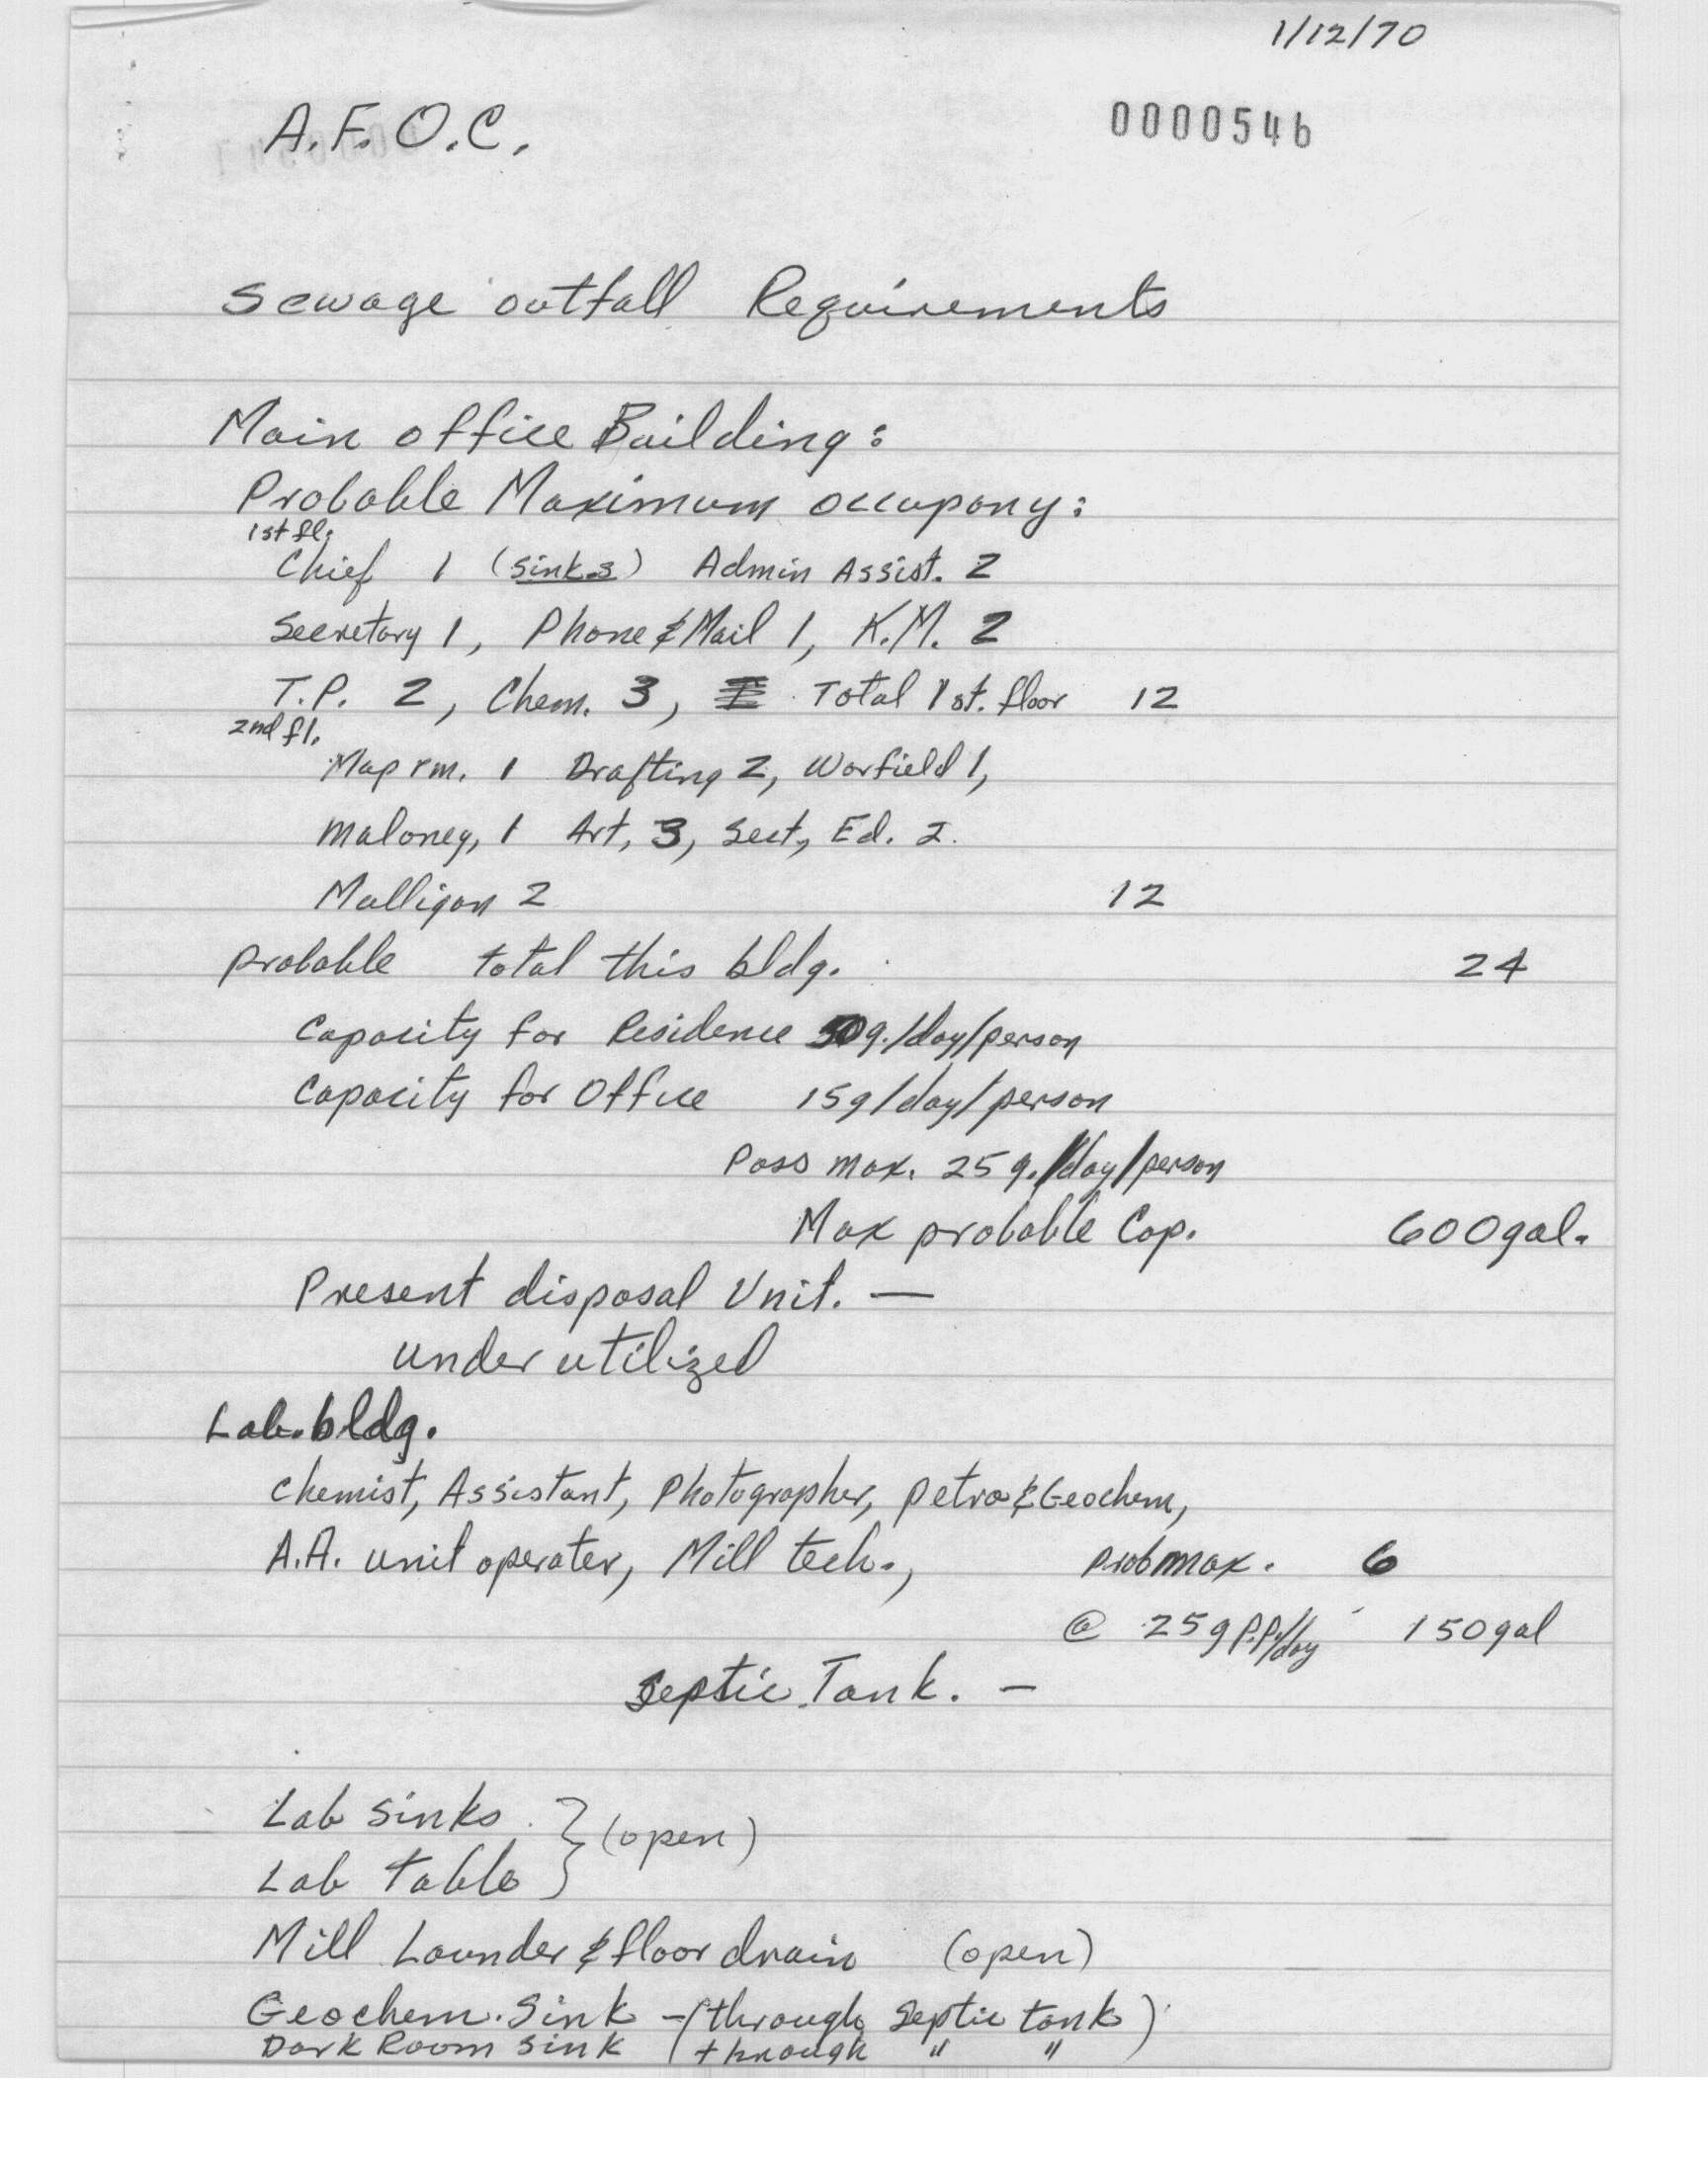 1/12/70
A.F.O.C.
0000546
Sewage outfall Requirements
Main office Building:
Probable Maximum occupany:
1st fl.
Chief 1 (sinks) Admin Assist. 2
Secretary 1, Phone & Mail 1, K.M. 2
T.P. 2, Chem. 3, Total 1st. floor 12
2nd fl.
Map rm. 1 Drafting 2, Warfield 1,
Maloney, 1 Art, 3, Sect, Ed. 2.
Mulligan 2 12
probable total this bldg. 24
Capacity for Residence 50g./day/person
Capacity for Office 15g/day/person
Poss max. 25g./day/person
Max probable Cap. 600gal.
Present disposal Unit. —
under utilized
Lab. bldg.
Chemist, Assistant, Photographer, petro & Geochem,
A.A. unit operater, Mill tech., prob max. 6
@ 25g P.P./day 150gal
Septic Tank. —
Lab sinks } (open)
Lab table
Mill Launder & floor drain (open)
Geochem. Sink - (through Septic tank)
Dark Room sink (through " " )